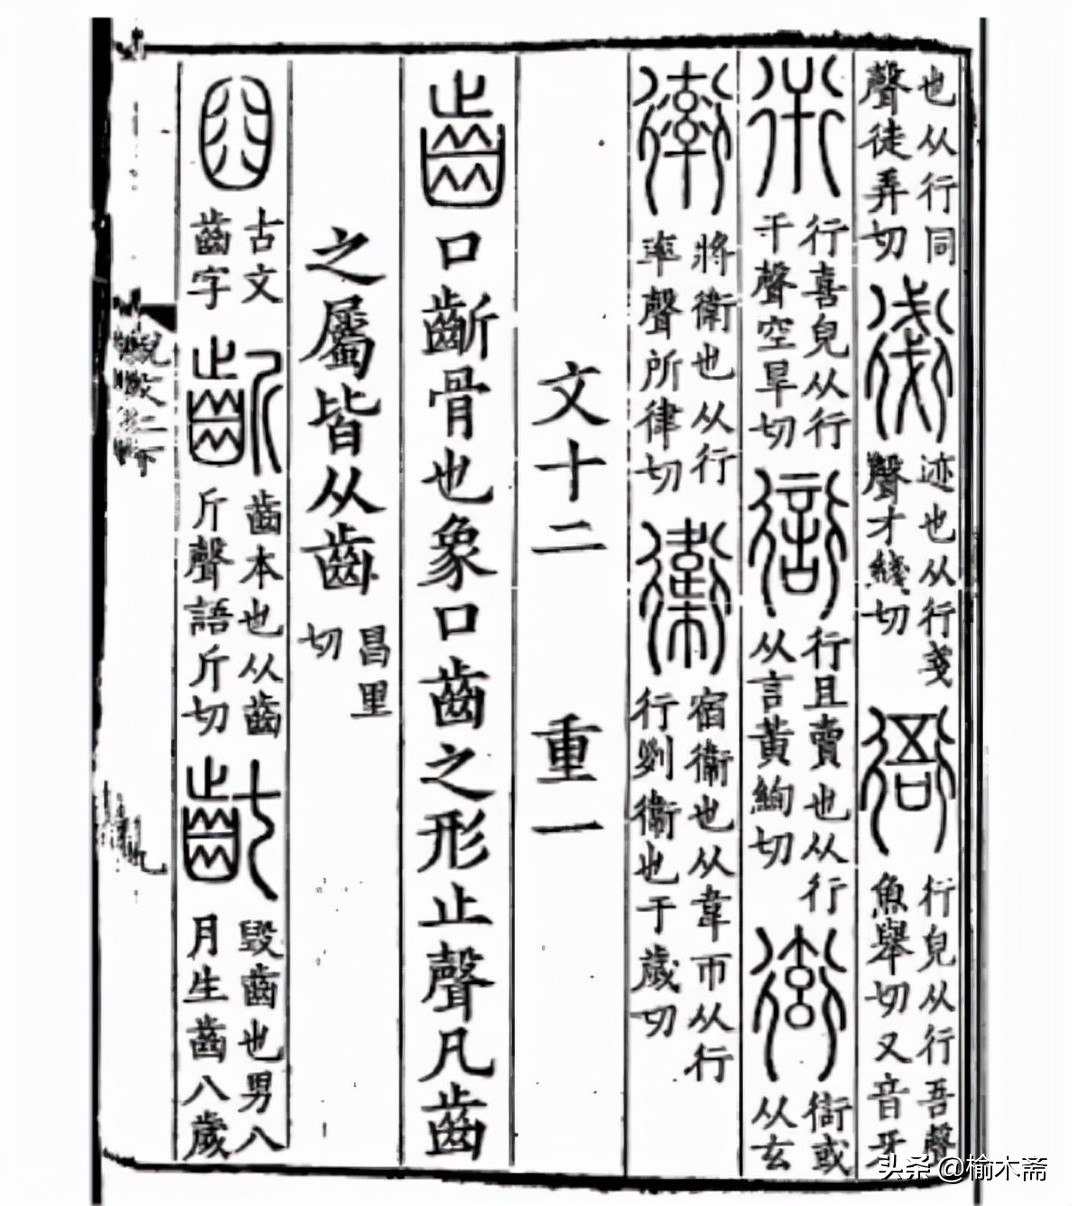 也从行同聲徒弄切 𧗸 迹也从行戔聲才綫切 衙 行皃从行吾聲魚舉切又音牙
衎 行喜皃从行干聲空旱切 𧗳 行且賣也从行从言黃絢切 衒 𧗳或从玄
𧗿 將衛也从行率聲所律切 衞 宿衞也从韋帀从行行列衞也于歲切
文十二 重一
齒 口齗骨也象口齒之形止聲凡齒
之屬皆从齒 昌里切
𠚕 古文齒字 齗 齒本也从齒斤聲語斤切 齔 毀齒也男八月生齒八歲
說文二下
九
头条 @榆木斋